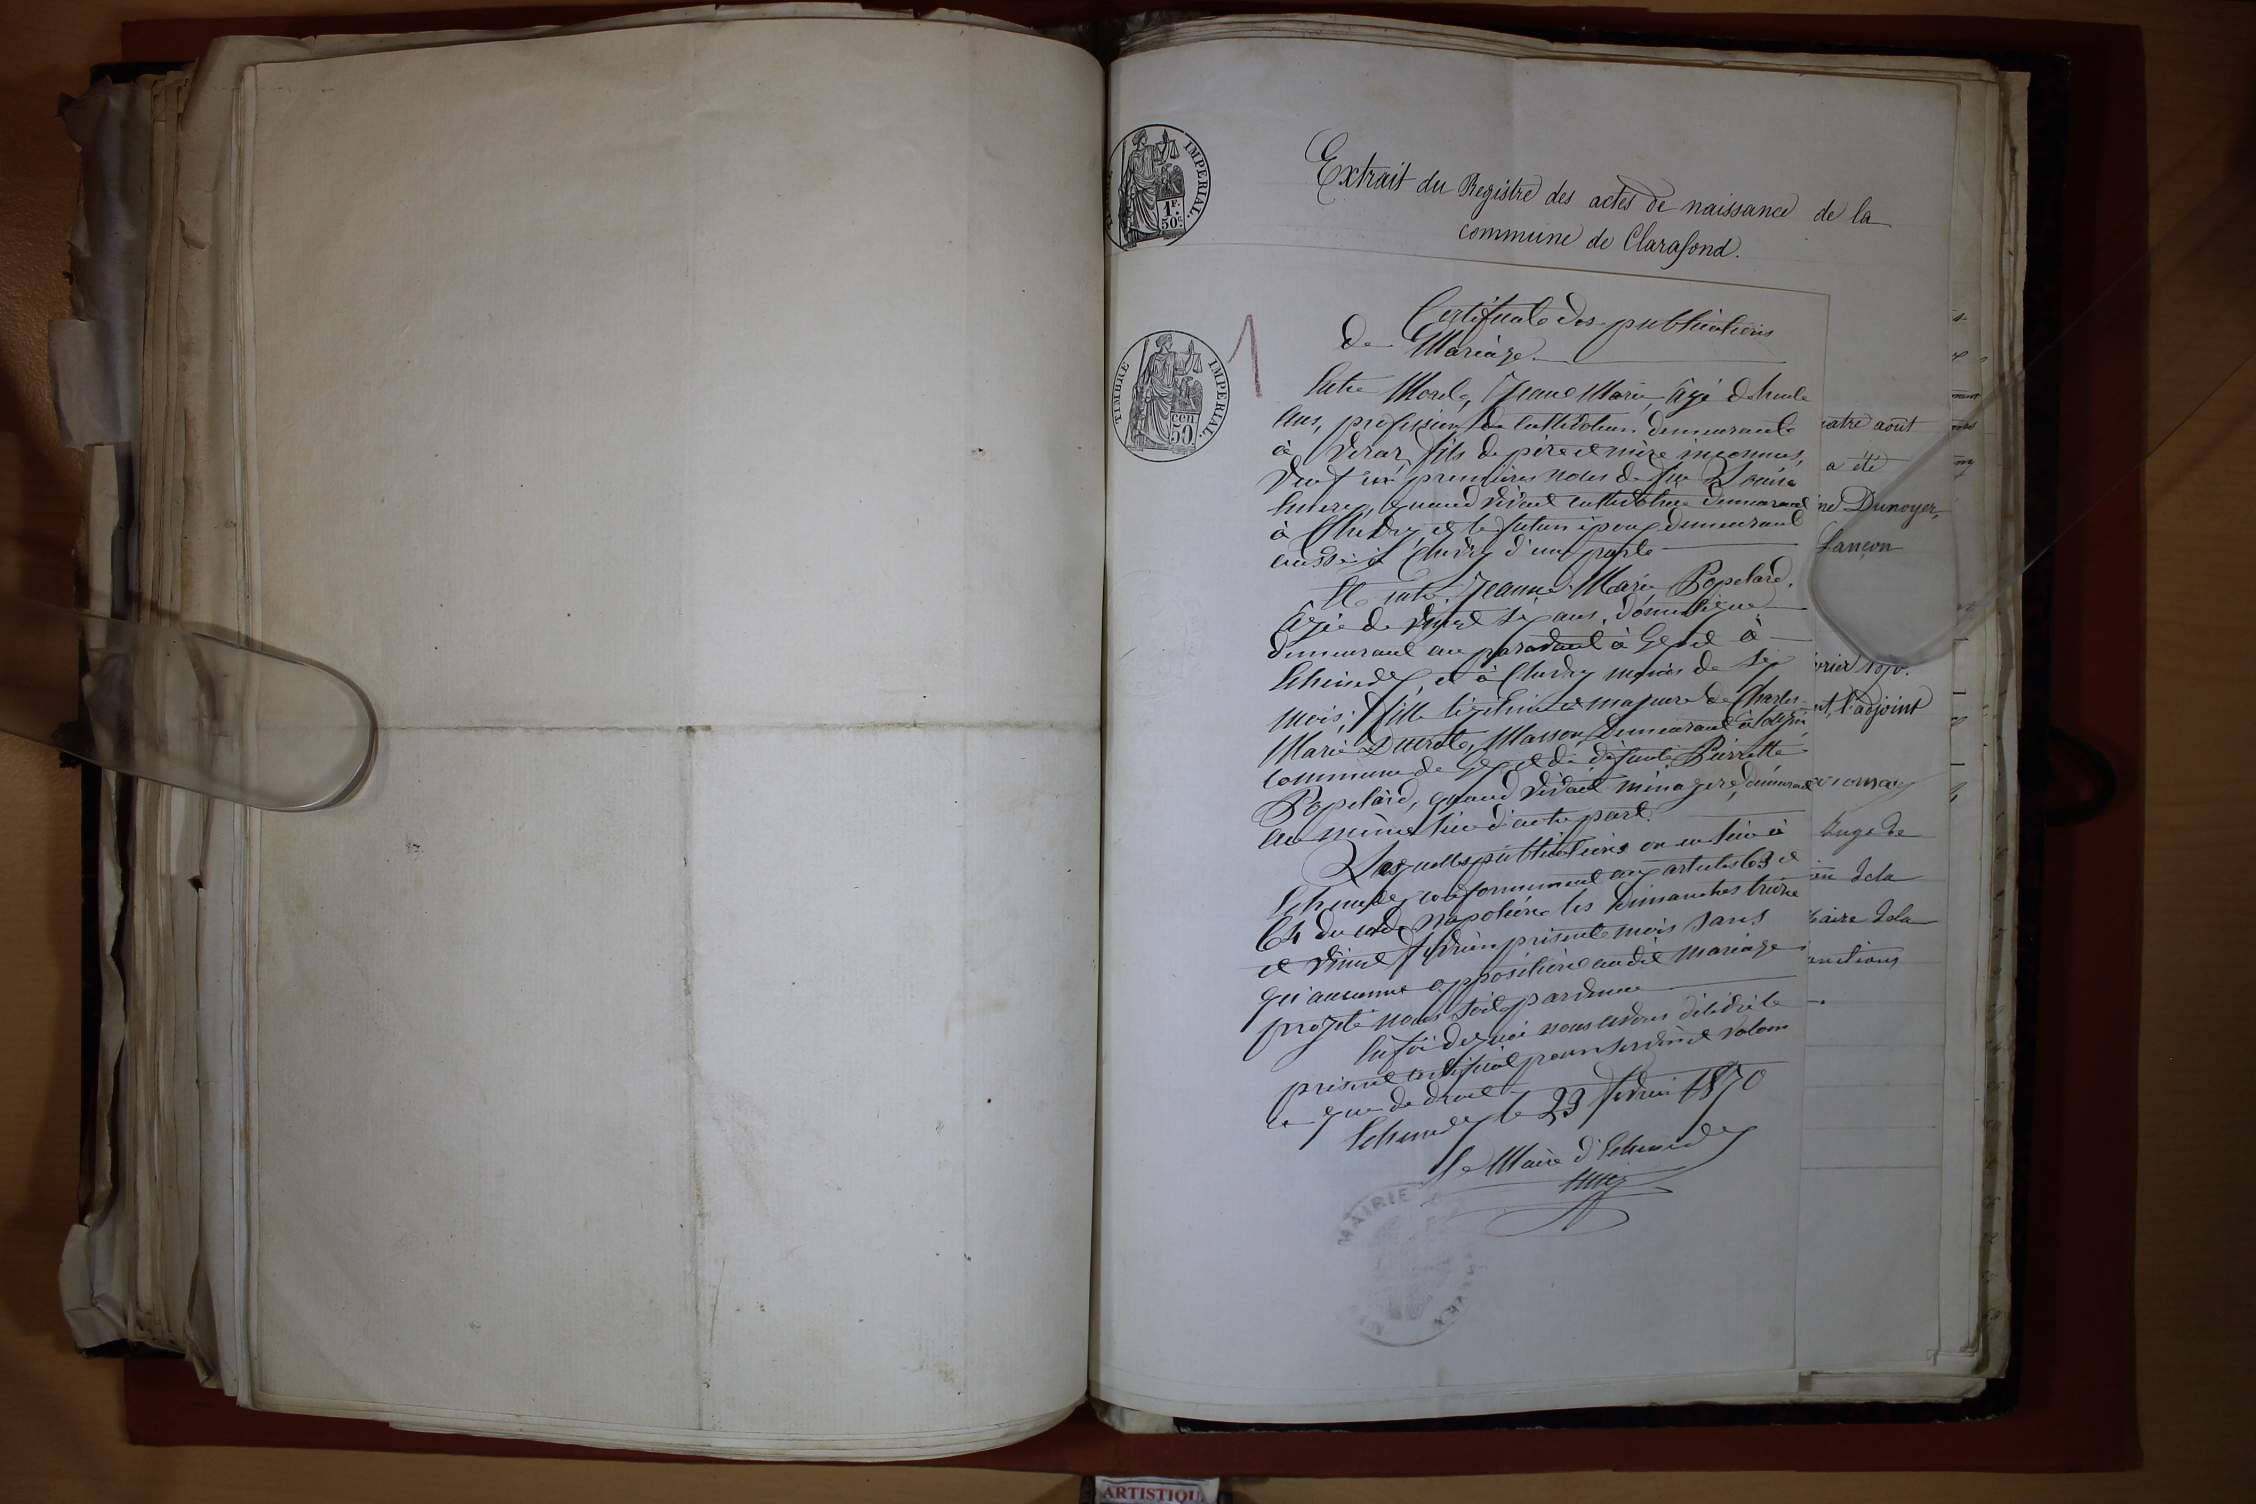 TIMBRE IMPERIAL.
1F. 50c
Extrait du Registre des actes de naissance de la
commune de Clarafond.
TIMBRE IMPERIAL.
50 CEN
1
Certificat des publications
de Mariage.
Entre Morel, Jean Marie, âgé de trente
ans, profession de cultivateur demeurant
à fils de père et mère inconnus,
veuf en premières noces de feu Louise
quand vivait cultivatrice demeurant
à Chevry et le futur époux demeurant
aussi à Chevry d'une part
Et entre Jeanne Marie Popelard,
âgée de vingt six ans, domestique
demeurant au paravant à Gex et à
Echenevex, et à Chevry moins de six
mois, fille légitime et majeure de Charles
Marie Masson demeurant à
commune de Gex et de défunte Pierrette
Popelard, quand vivait ménagère, demeurant
au même lieu d'autre part.
Lesquelles publications on eu lieu à
Echenevex conformément aux articles 63 et
64 du code Napoléon les dimanches treize
et vingt février présent mois sans
qu'aucune opposition audit mariage
projeté nous soit parvenue
En foi de quoi nous avons délivré le
présent certificat pour servir et valoir
ce que de droit
Echenevex le 23 février 1870
Le Maire d'Echenevex
MAIRIE
août
a été
Dunoyer,
Lançon
l'adjoint
Juge de
de la
Maire de la
ARTISTIQU